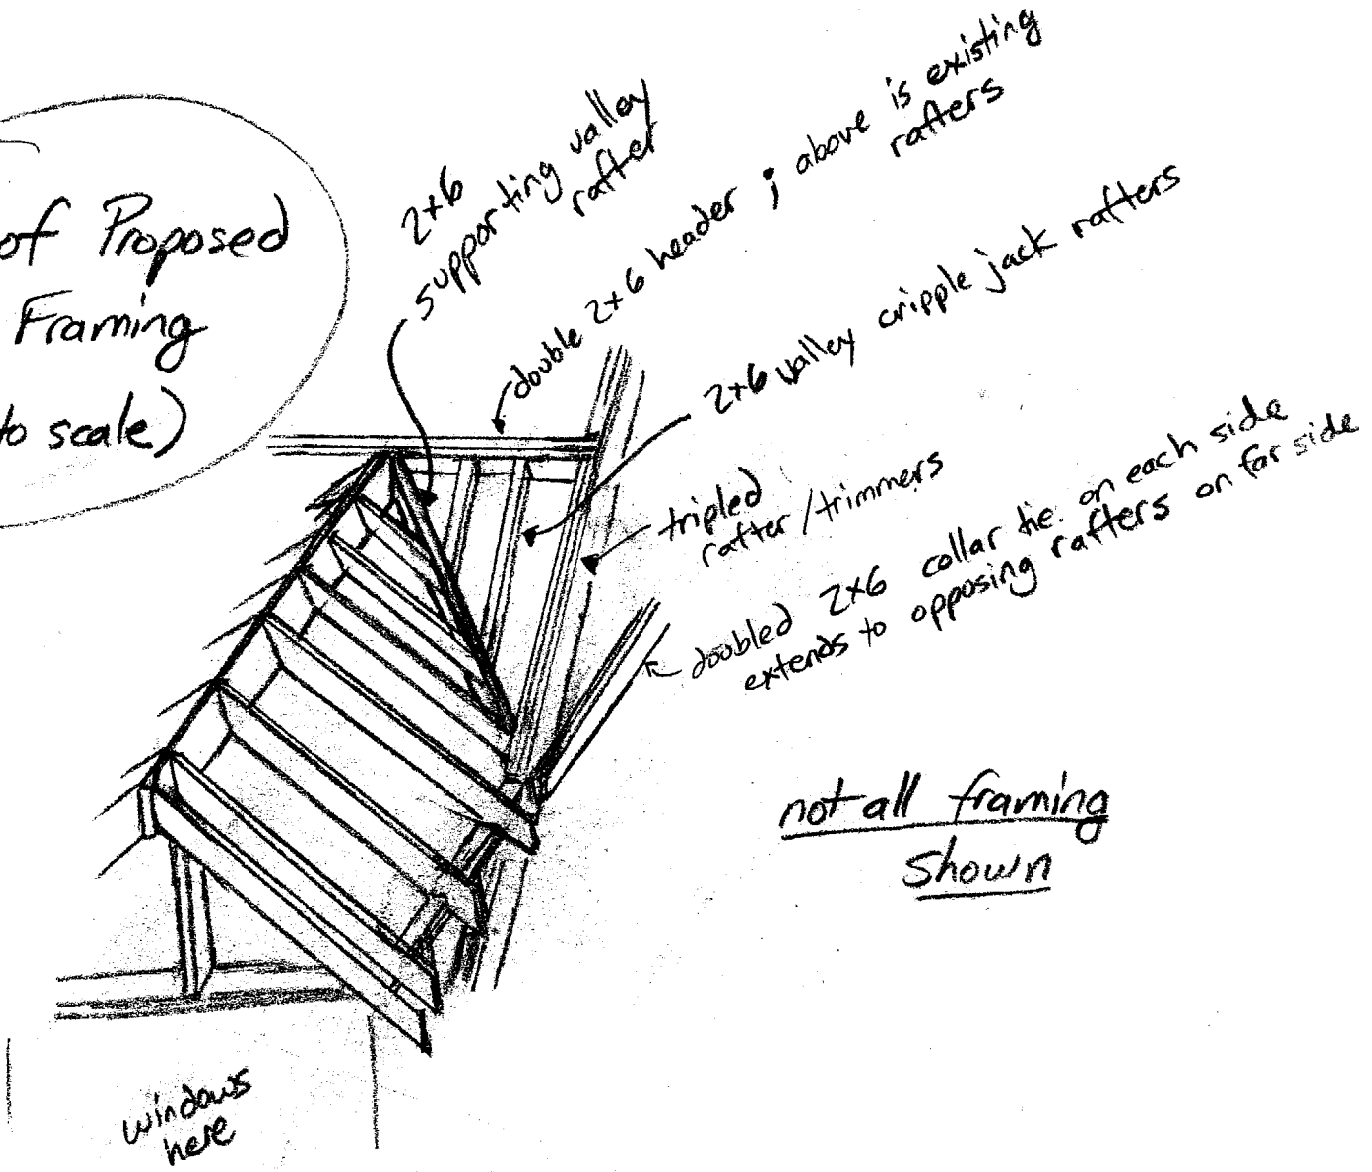 of Proposed
Framing
to scale)
2x6
supporting valley
rafter
double 2x6 header ; above is existing
rafters
2x6 valley cripple jack rafters
tripled
rafter/trimmers
doubled 2x6 collar tie on each side
extends to opposing rafters on far side
not all framing
shown
windows
here